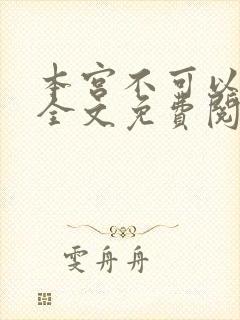 本宫不可以
全文免費閱
雯舟舟